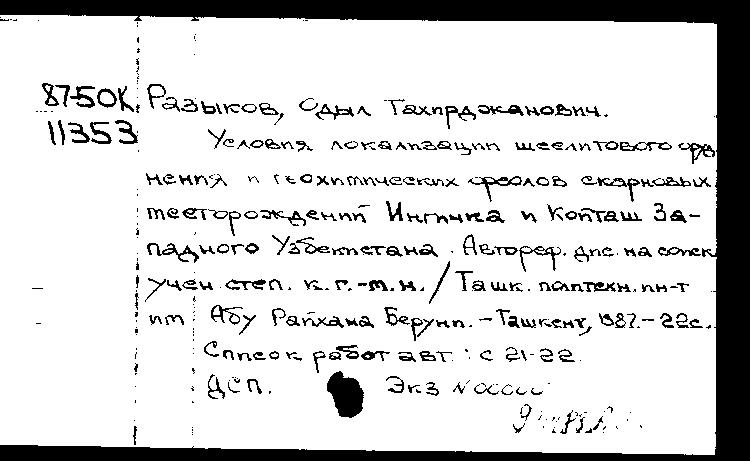 87-50К Разыков, Одыл Тахирджанович.
11353 Условия локализации шеелитового оруд-
нения и геохимических ореолов скарновых
месторождений Ингичка и Койташ За-
падного Узбекистана. Автореф. дис. на соиск
учен степ. к. г.-м. н. / Ташк. политехн. ин-т
им Абу Райхана Беруни. - Ташкент, 1987. - 22с.
Список работ авт.: с 21-22.
ДСП. Экз N